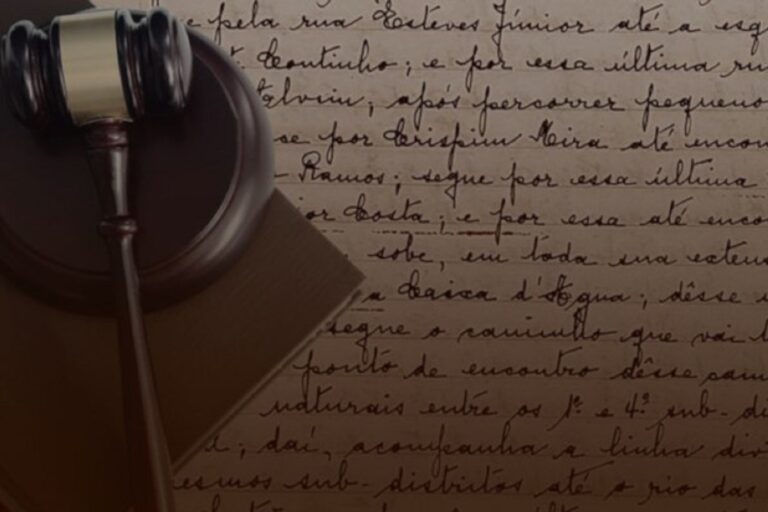 e pela rua Esteves Júnior até a esq
t. Coutinho; e por essa última ru
Alvim; após percorrer pequeno
se por Crispim Mira até encon
Ramos; segue por essa última
or Costa; e por essa até enco
sobe, em toda sua exten
a Caixa d'Agua; dêsse
segue o caminho que vai
ponto de encontro dêsse cam
naturais entre os 1º e 4º sub-di
; daí, acompanha a linha div
esmos sub-distritos até o rio das